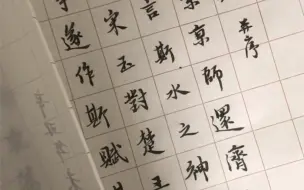 并序
京師還濟
言斯水之神
宋玉對楚王
遂作斯賦